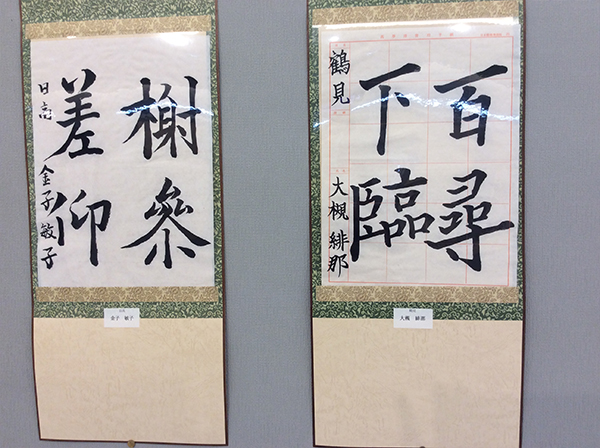 百尋
下臨
鶴見 大槻緋那
大槻 緋那
榭參
差仰
日高 金子敏子
金子 敏子